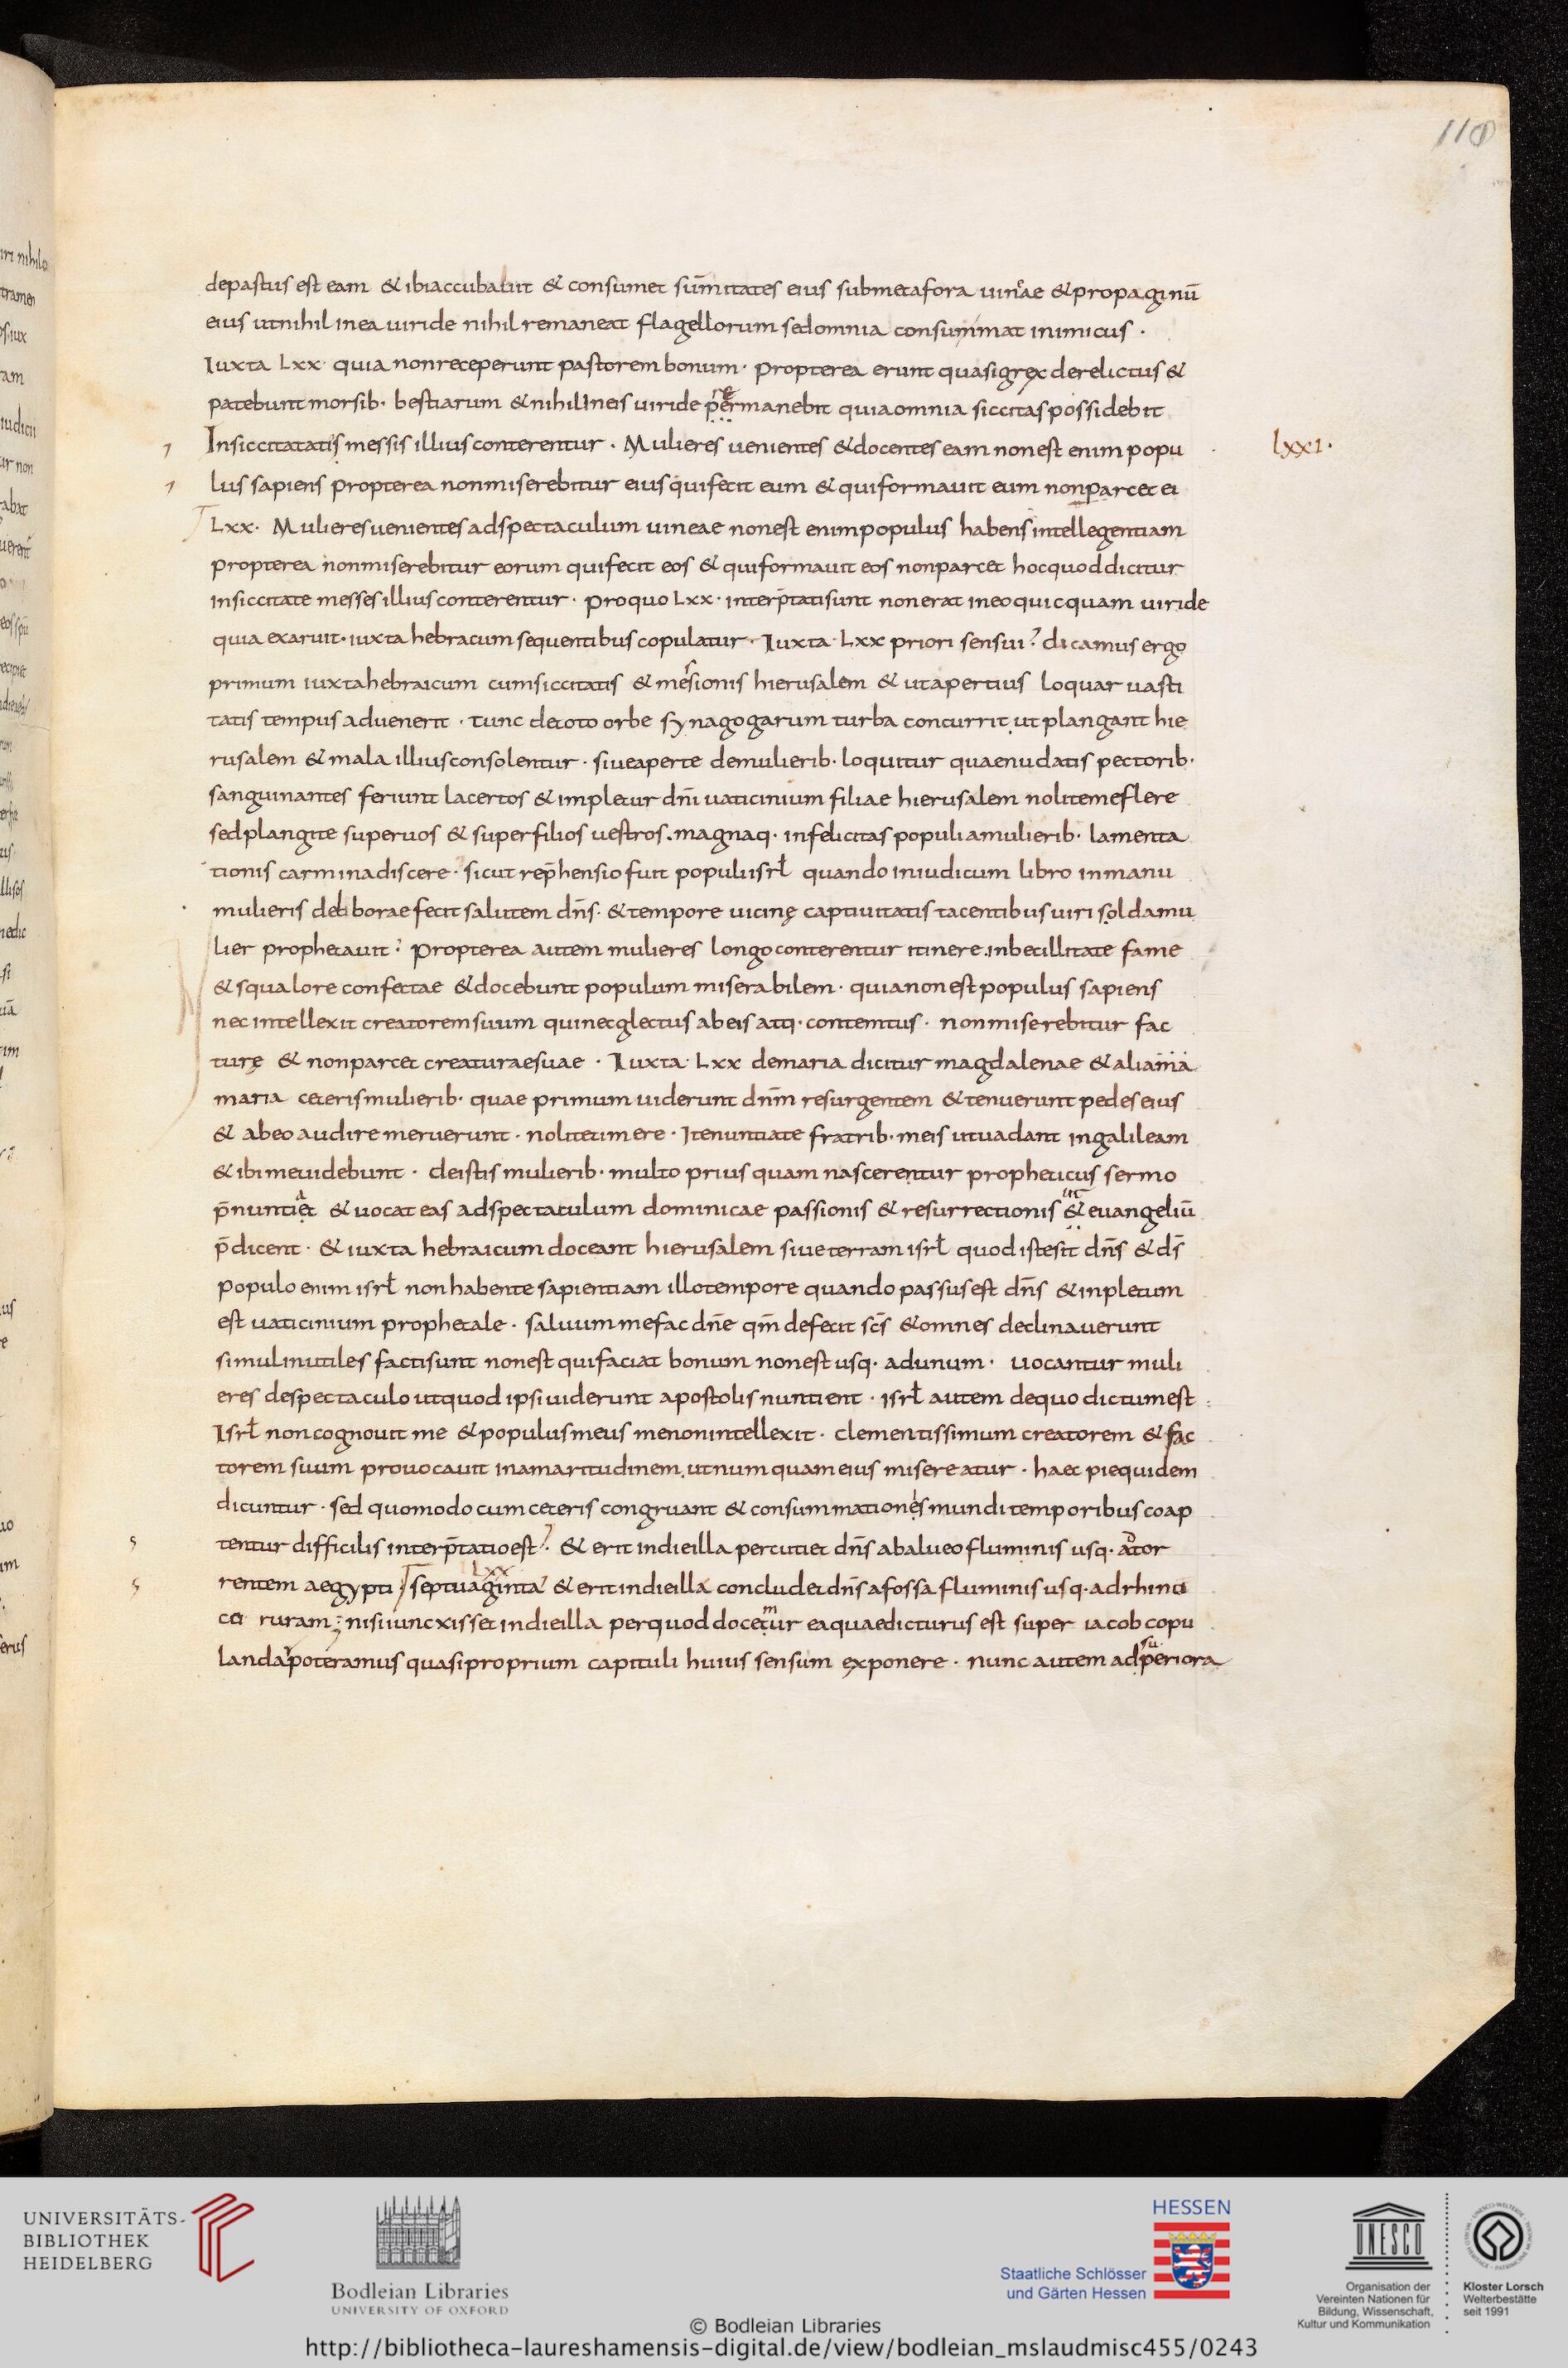 110
depastus est eam & ibi accubauit & consumet sūmitates eius sub metafora uineae & propaginū
eius ut nihil in ea uiride nihil remaneat flagellorum sed omnia consummat inimicus ·
Iuxta Lxx quia non receperunt pastorem bonum · propterea erunt quasi grex derelictus &
patebunt morsib· bestiarum & nihil in eis uiride permanebit quia omnia siccitas possidebit
Insiccitatatis messis illius conterentur · Mulieres uenientes & docentes eam non est enim popu
lxx1·
lus sapiens propterea non miserebitur eius qui fecit eum & qui formauit eum non parcet ei
Lxx · Mulieres uenientes ad spectaculum uineae non est enim populus habens intellegentiam
propterea non miserebitur eorum qui fecit eos & qui formauit eos non parcet hoc quod dicitur
in siccitate messes illius conterentur · pro quo Lxx · interp̄tati sunt non erat in eo quicquam uiride
quia exaruit · iuxta hebracum sequentibus copulatur · Iuxta Lxx priori sensui? dicamus ergo
primum iuxta hebraicum cum siccitatis & messionis hierusalem & ut apertius loquar uasti
tatis tempus aduenerit · tunc de toto orbe synagogarum turba concurrit ut plangant hie
rusalem & mala illius consolentur · siue aperte de mulierib· loquitur quae nudatis pectorib·
sanguinantes feriunt lacertos & impletur dn̄i uaticinium filiae hierusalem nolite me flere
sed plangite super uos & super filios uestros . magnaq· infelicitas populi a mulierib· lamenta
tionis carmina discere · sicut rep̄hensio fuit populi isrł quando in iudicum libro in manu
mulieris deborae fecit salutem dn̄s · & tempore uicinę captiuitatis tacentibus uiri solda mu
lier prophetauit? Propterea autem mulieres longo conterentur itinere inbecillitate fame
& squalore confectae & docebunt populum miserabilem · quia non est populus sapiens
nec intellexit creatorem suum qui necglectus ab eis atq· contemtus · non miserebitur fac
turę & non parcet creaturae suae · Iuxta Lxx de maria dicitur magdalenae & aliama
maria ceteris mulierib· quae primum uiderunt dn̄m resurgentem & tenuerunt pedes eius
& ab eo audire meruerunt · nolite timere · Ite nuntiate fratrib· meis ut uadant in galileam
& ibi me uidebunt · de istis mulierib· multo prius quam nascerentur propheticus sermo
p̄nuntiat & uocat eas ad spectaculum dominicae passionis & resurrectionis ut euangeliū
p̄dicent · & iuxta hebraicum doceant hierusalem siue terram isrł quod iste sit dn̄s & ds̄
populo enim isrł non habente sapientiam illo tempore quando passus est dn̄s & inpletum
est uaticinium prophetale · saluum me fac dn̄e qm̄ defecit scs̄ & omnes declinauerunt
simul inutiles facti sunt non est qui faciat bonum non est usq· ad unum · uocantur muli
eres de spectaculo ut quod ipsi uiderunt apostolis nuntient · isrł autem de quo dictum est
Isrł non cognouit me & populus meus me non intellexit · clementissimum creatorem & fac
torem suum prouocauit in amaritudinem ut numquam eius misereatur · haec pie quidem
dicuntur · sed quomodo cum ceteris congruant & consummationis mundi temporibus coap
tentur difficilis interp̄tatio est? · & erit in die illa percutiet dn̄s ab alueo fluminis usq· ad tor
rentem aegypti septuaginta Lxx & erit in die illa concludet dn̄s a fossa fluminis usq· ad rhino
co ruram; nisi iunxisset in die illa per quod docemur ea quae dicturus est super iacob copu
landa poteramus quasi proprium capituli huius sensum exponere · nunc autem ad superiora
UNIVERSITÄTS-
BIBLIOTHEK
HEIDELBERG
Bodleian Libraries
UNIVERSITY OF OXFORD
HESSEN
Staatliche Schlösser
und Gärten Hessen
UNESCO
Organisation der
Vereinten Nationen für
Bildung, Wissenschaft,
Kultur und Kommunikation
Kloster Lorsch
Welterbestätte
seit 1991
© Bodleian Libraries
http://bibliotheca-laureshamensis-digital.de/view/bodleian_mslaudmisc455/0243